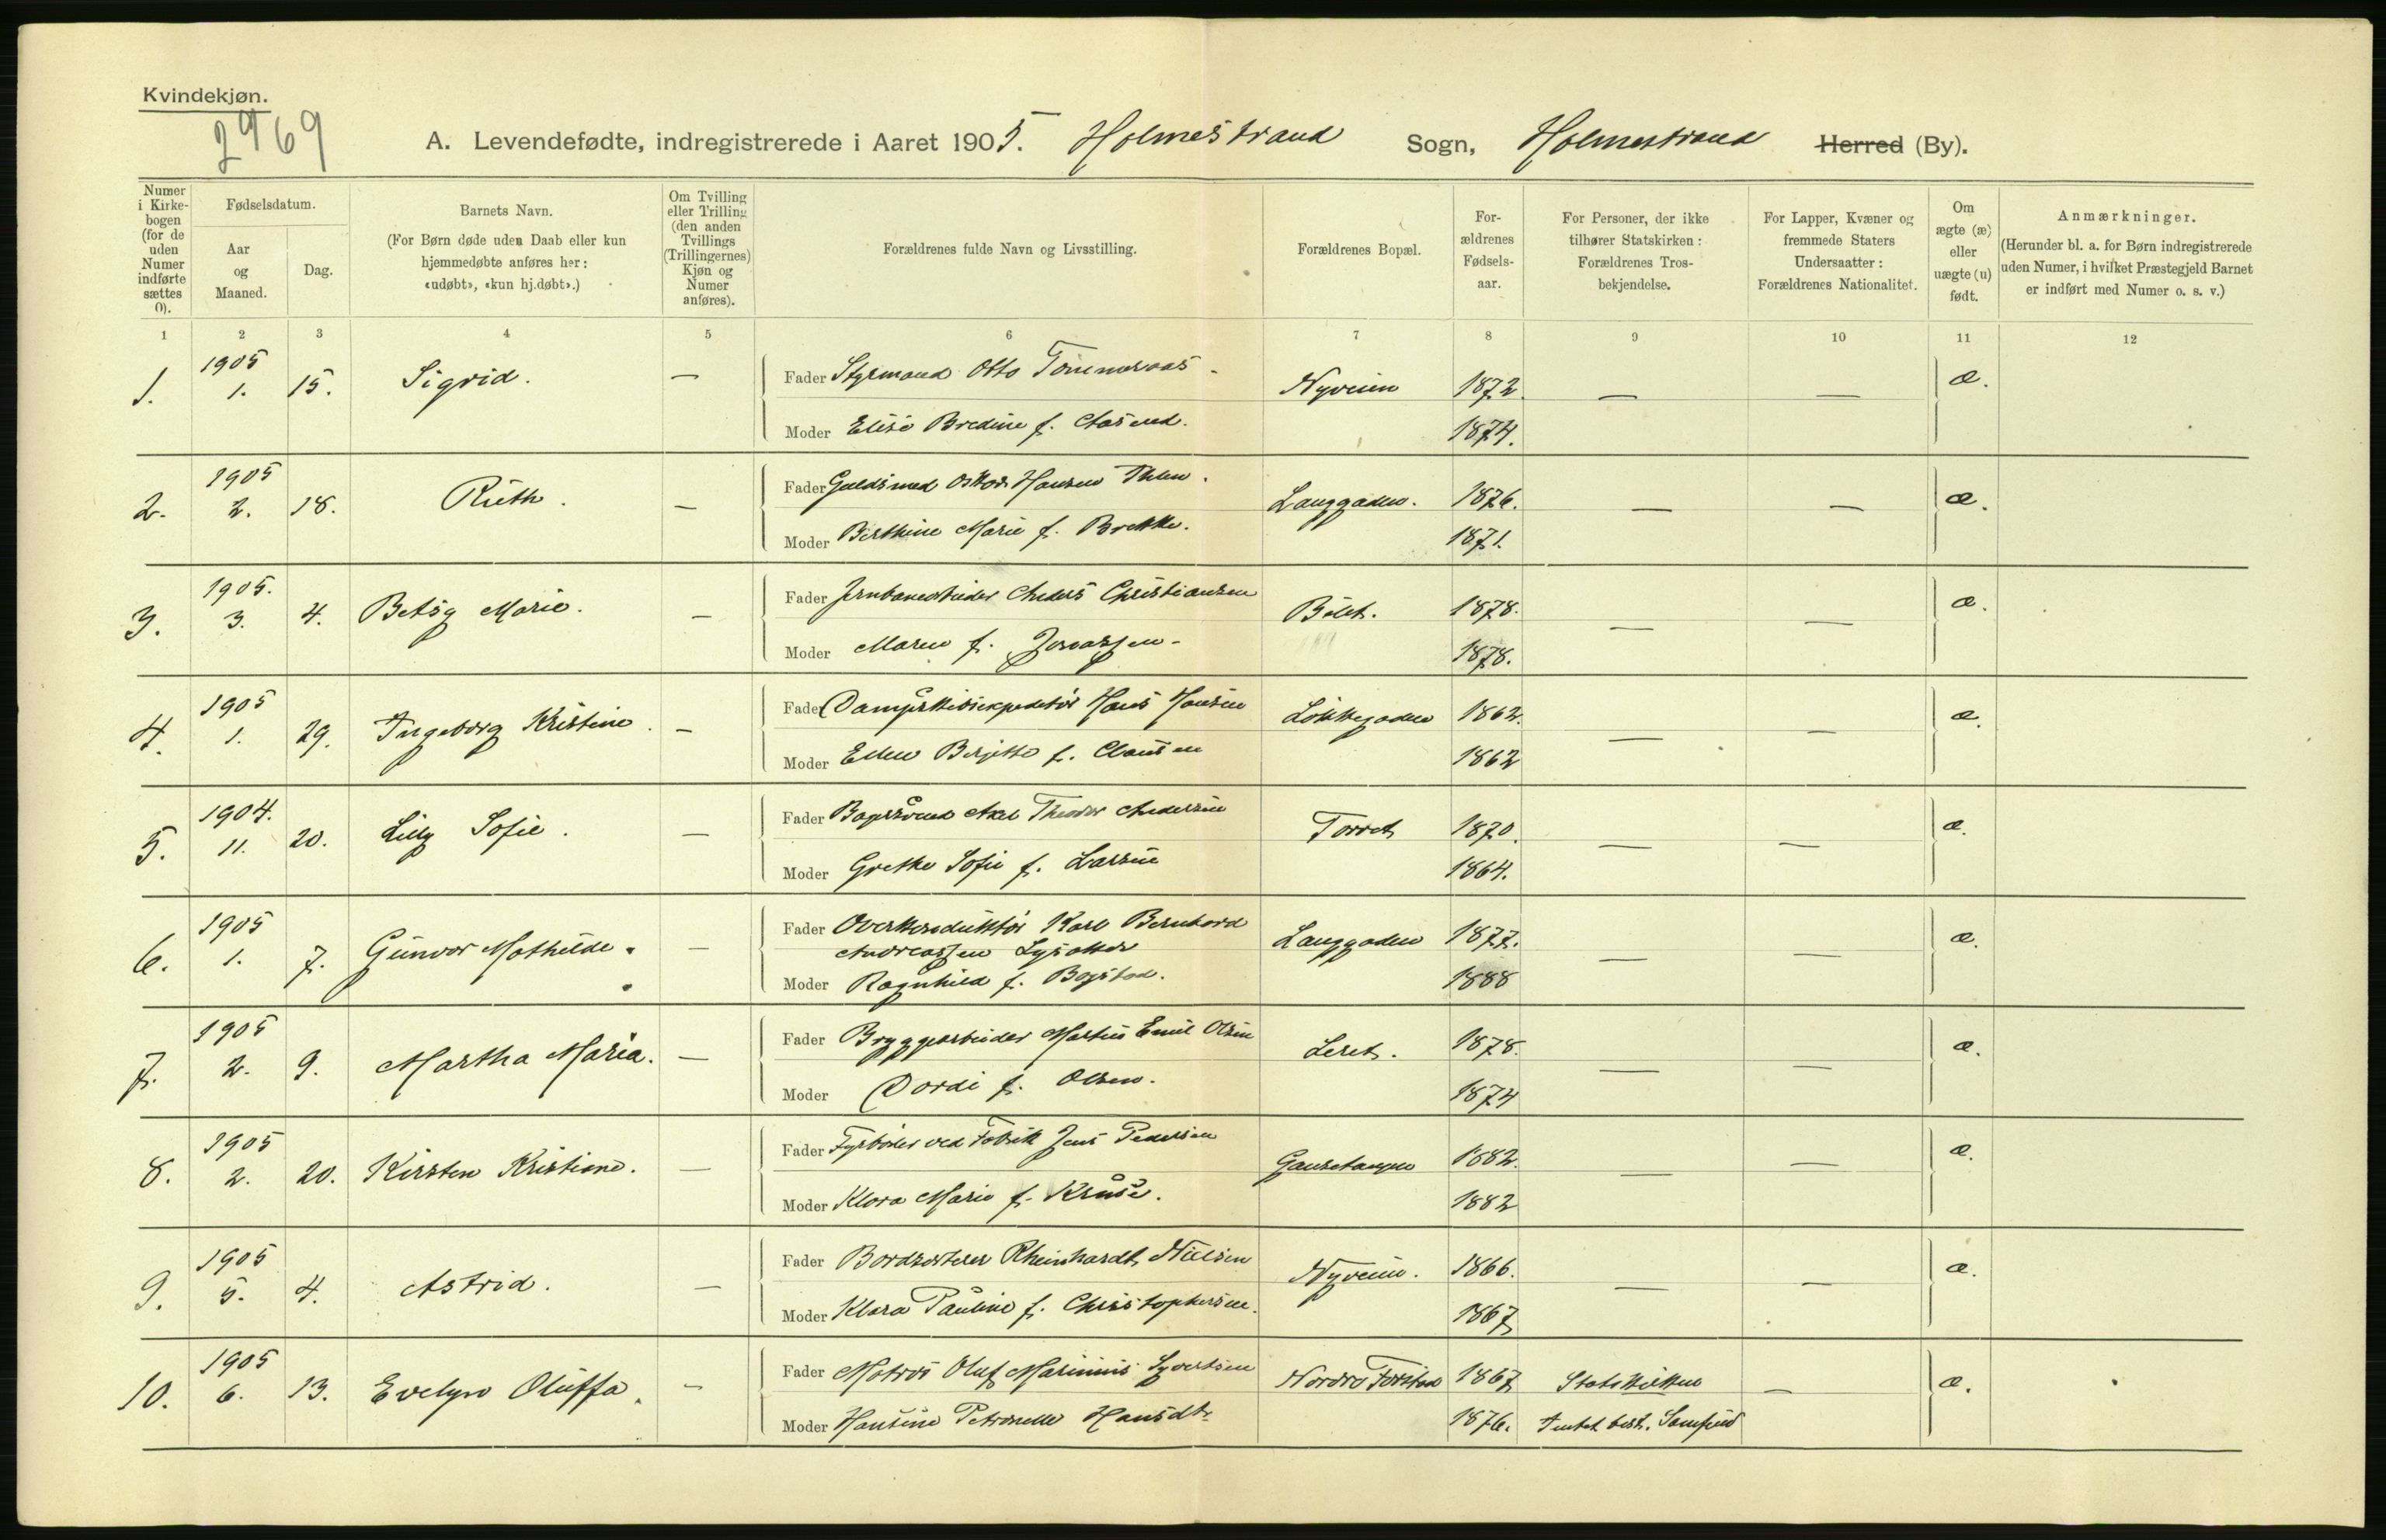 Kvindekjøn.
2969
A. Levendefødte, indregistrerede i Aaret 1905. Holmestrand Sogn, Holmestrand Herred (By).
Numer i Kirkebogen (for de uden Numer indførte sættes 0).
Fødselsdatum.
Aar og Maaned.
Dag.
Barnets Navn.
(For Børn døde uden Daab eller kun hjemmedøbte anføres her: «udøbt», «kun hj.døbt».)
Om Tvilling eller Trilling (den anden Tvillings (Trillingernes) Kjøn og Numer anføres).
Forældrenes fulde Navn og Livsstilling.
Forældrenes Bopæl.
Forældrenes Fødselsaar.
For Personer, der ikke tilhører Statskirken: Forældrenes Trosbekjendelse.
For Lapper, Kvæner og fremmede Staters Undersaatter: Forældrenes Nationalitet.
Om ægte (æ) eller uægte (u) født.
Anmærkninger.
(Herunder bl. a. for Børn indregistrerede uden Numer, i hvilket Præstegjeld Barnet er indført med Numer o. s. v.)
1 2 3 4 5 6 7 8 9 10 11 12
1. 1905 1. 15. Sigrid. — Fader Styrmand Otto Nyveien 1872. — — æ.
Moder Elise Bredine f. Aasend. 1874.
2. 1905 2. 18. Ruth. — Fader Guldsmed Oskar Hansen Langgaden. 1876. — — æ.
Moder Berthine Marie f. Brekke. 1871.
3. 1905. 3. 4. Betsy Marie. — Fader Jernbanearbeider Anders Christiansen 1878. — — æ.
Moder Maren f. 1878.
4. 1905 1. 29. Ingeborg Kristine. — Fader Dampskibsexpeditør Hans Hansen Løkkegaden 1862. — — æ.
Moder Ellen Berjitte f. Clausen 1862
5. 1904. 11. 20. Lilly Sofie. — Fader Bagersvend Axel Theodor Andersen Torvet 1870. — — æ.
Moder Grethe Sofie f. Larsen 1864.
6. 1905 1. 7. Gunvor Mathilde. — Fader Overkonduktør Karl Bernhard
Andreassen Langgaden 1877. — — æ.
Moder Ragnhild f. Bogstad. 1888
7. 1905 2. 9. Martha Maria. — Fader Bryggearbeider Martin Emil Olsen Leret. 1878. — — æ.
Moder Dordi f. Olsen. 1874
8. 1905 2. 20. Kirsten Kristiane. — Fader Fyrbøder ved Fabrik Jens Pedersen Gausetangen 1882. — — æ.
Moder Klara Marie f. Kruse. 1882
9. 1905 5. 4. Astrid. — Fader Bordsorterer Rheinhardt Nielsen Nyveien. 1866. — — æ.
Moder Klara Pauline f. Christophersen. 1867
10. 1905 6. 13. Evelyn Oluffa. — Fader Matros Oluf Marinius Syvertsen Nordre 1867 Statskirken — æ.
Moder Hansine Petronelle Hansdtr 1876. Intet best. Samfund